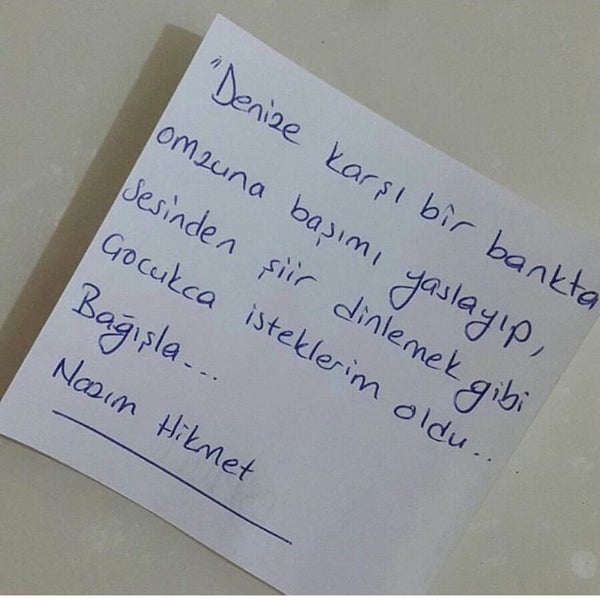 "Denize karşı bir bankta
omzuna başımı yaslayıp,
Sesinden şiir dinlemek gibi
Çocukca isteklerim oldu..
Bağışla...
Nazım Hikmet